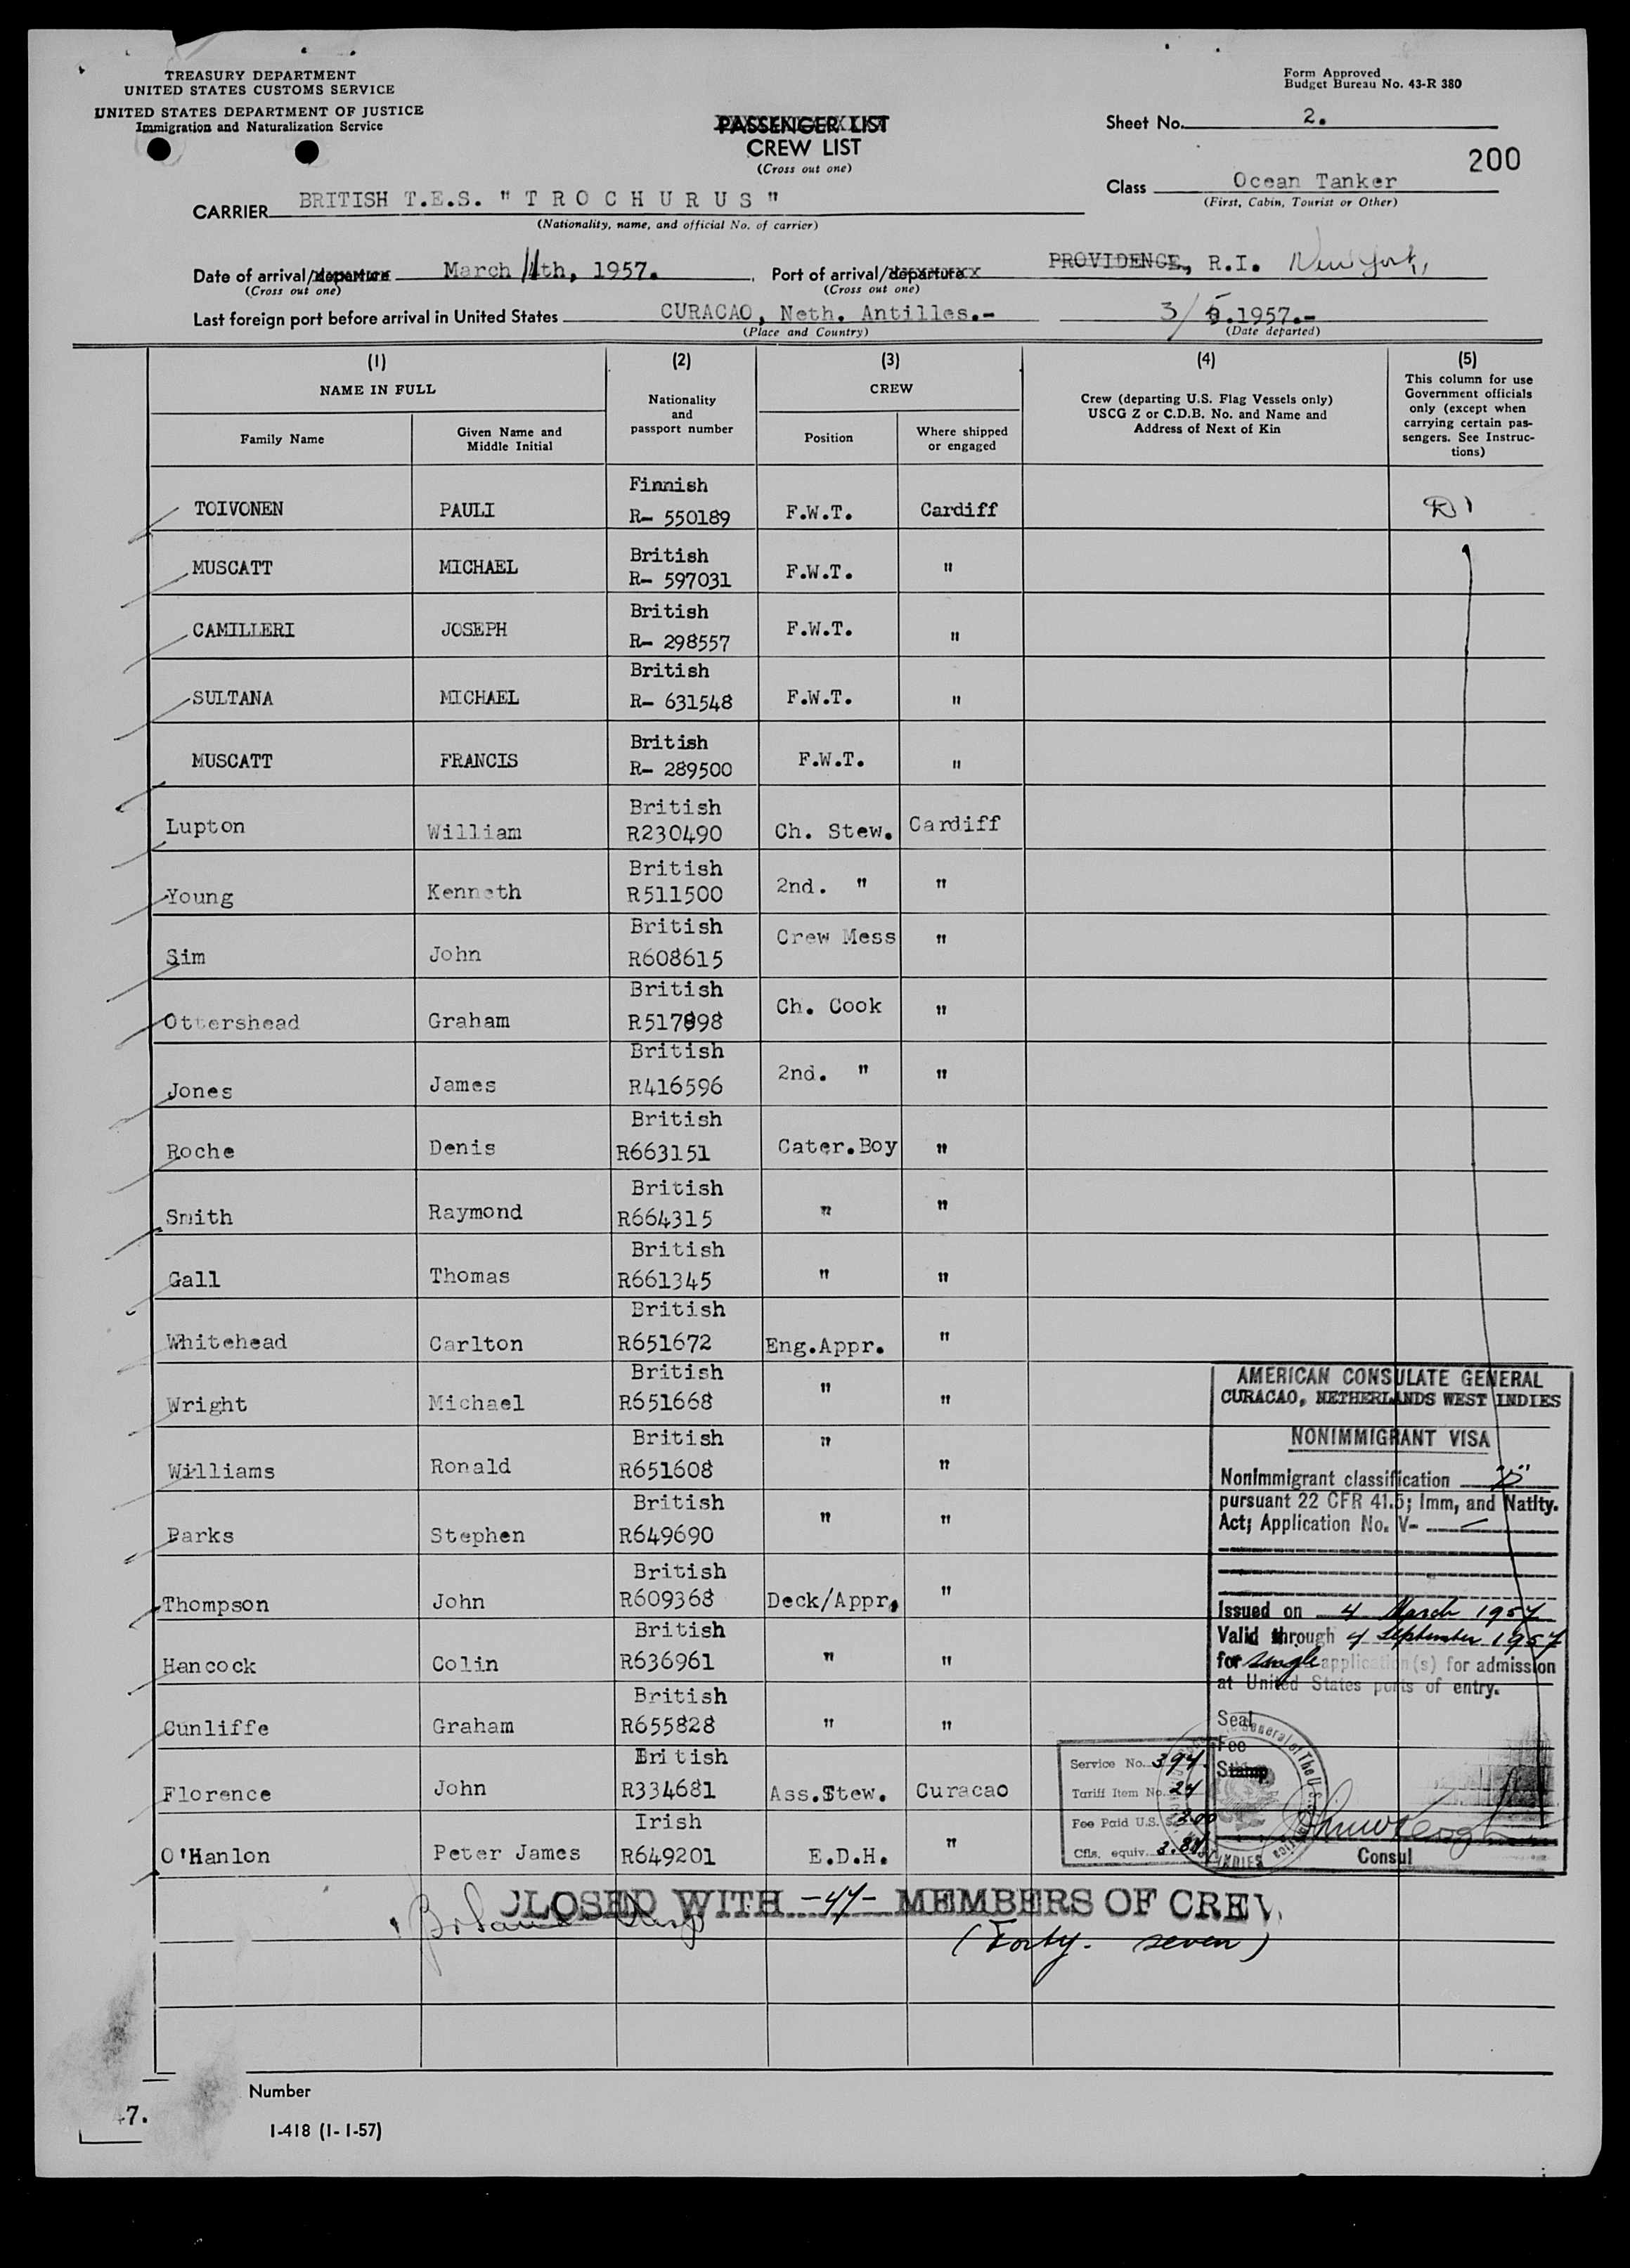 TREASURY DEPARTMENT
UNITED STATES CUSTOMS SERVICE
UNITED STATES DEPARTMENT OF JUSTICE
Immigration and Naturalization Service
Form Approved
Budget Bureau No. 43-R 380
PASSENGER LIST
CREW LIST
(Cross out one)
Sheet No. 2.
200
Class Ocean Tanker
(First, Cabin, Tourist or Other)
CARRIER BRITISH T.E.S. " T R O C H U R U S "
(Nationality, name, and official No. of carrier)
Date of arrival/departure March 11th, 1957. Port of arrival/departure PROVIDENCE, R.I. New York,
(Cross out one) (Cross out one)
Last foreign port before arrival in United States CURACAO, Neth. Antilles.- 3/5.1957.-
(Place and Country) (Date departed)
(1) (2) (3) (4) (5)
NAME IN FULL
Nationality and passport number
CREW
Crew (departing U.S. Flag Vessels only) USCG Z or C.D.B. No. and Name and Address of Next of Kin
This column for use Government officials only (except when carrying certain passengers. See Instructions)
Family Name Given Name and Middle Initial Position Where shipped or engaged
TOIVONEN PAULI Finnish R- 550189 F.W.T. Cardiff D 1
MUSCATT MICHAEL British R- 597031 F.W.T. "
CAMILLERI JOSEPH British R- 298557 F.W.T. "
SULTANA MICHAEL British R- 631548 F.W.T. "
MUSCATT FRANCIS British R- 289500 F.W.T. "
Lupton William British R230490 Ch. Stew. Cardiff
Young Kenneth British R511500 2nd. " "
Sim John British R608615 Crew Mess "
Ottershead Graham British R517898 Ch. Cook "
Jones James British R416596 2nd. " "
Roche Denis British R663151 Cater.Boy "
Smith Raymond British R664315 " "
Gall Thomas British R661345 " "
Whitehead Carlton British R651672 Eng.Appr. "
Wright Michael British R651668 " "
Williams Ronald British R651608 " "
Parks Stephen British R649690 " "
Thompson John British R609368 Deck/Appr. "
Hancock Colin British R636961 " "
Cunliffe Graham British R655828 " "
Florence John British R334681 Ass.Stew. Curacao
O'Hanlon Peter James Irish R649201 E.D.H. "
AMERICAN CONSULATE GENERAL
CURACAO, NETHERLANDS WEST INDIES
NONIMMIGRANT VISA
Nonimmigrant classification "D"
pursuant 22 CFR 41.5; Imm, and Natlty.
Act; Application No. V- —
Issued on 4 March 1957
Valid through 4 September 1957
for single application(s) for admission
at United States ports of entry.
Seal
Fee
Stamp
Consul
Service No. 394
Tariff Item No. 24
Fee Paid U.S. $2.00
Cfls. equiv. 3.84
CLOSED WITH -47- MEMBERS OF CREW.
(Forty - seven)
47.
Number
I-418 (1-1-57)